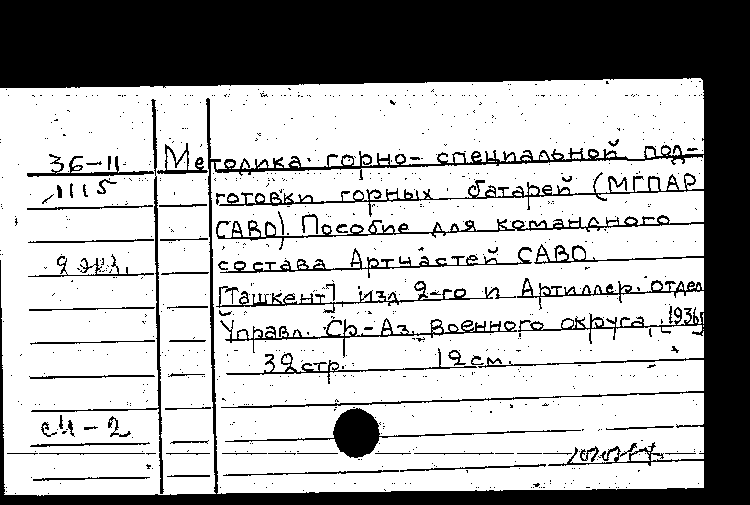 36-11
1115
2 экз.
Методика горно-специальной под-
готовки горных батарей (МГПАР
САВО). Пособие для командного
состава Артчастей САВО.
[Ташкент], изд 2-го и Артиллер. отдел
Управл. Ср.-Аз. Военного округа, [1936]
32 стр. 12 см.
см - 2